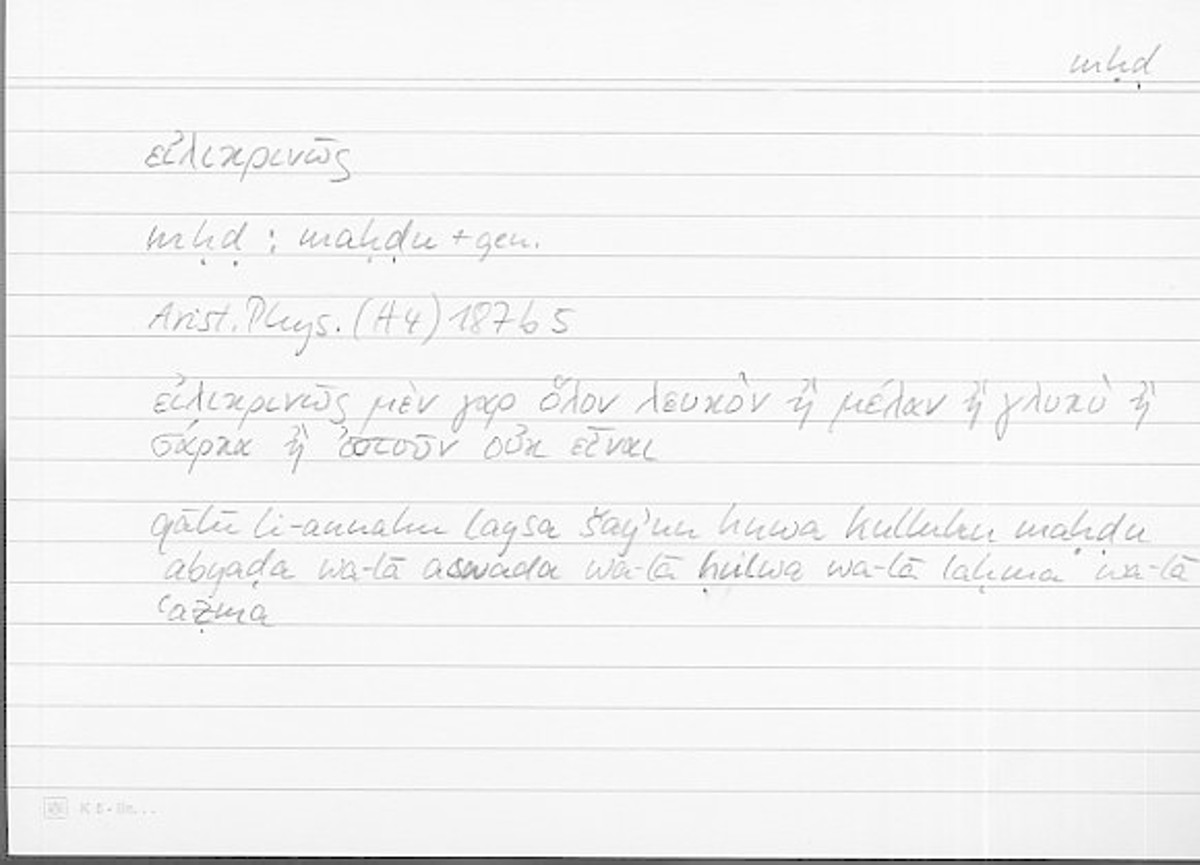 mḥḍ
εἰλικρινῶς
mḥḍ : maḥḍu + gen.
Arist. Phys. (A 4) 187 b 5
εἰλικρινῶς μὲν γαρ ὅλον λευκὸν ἢ μέλαν ἢ γλυκὺ ἢ
σάρκα ἢ ὀστοῦν οὐκ εἶναι
qālū li-annahu laysa šayʾun huwa kulluhu maḥḍu
abyaḍa wa-lā aswada wa-lā ḥulwa wa-lā laḥma wa-lā
ʿaẓma